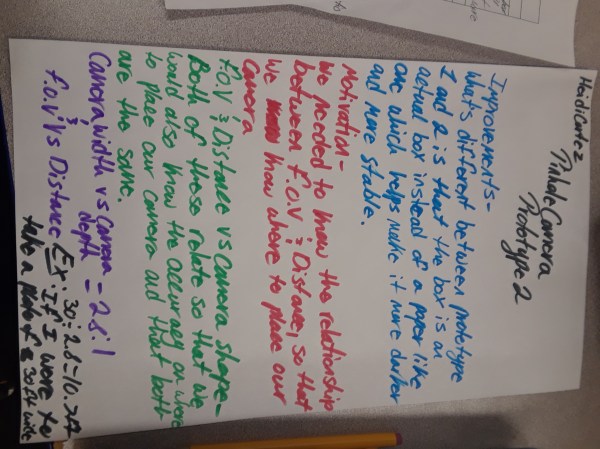 Heidi Cortez
Pinhole Camera
Prototype 2
Improvements-
What's different between prototype
1 and 2 is that the box is an
actual box instead of a paper like
one which helps make it more darker
and more stable.
Motivation-
We needed to know the relationship
between f.o.v & Distance, so that
we know where to place our
camera
f.o.v & Distance vs camera shape-
Both of these relate so that we
would also know the accuracy on where
to place our camera and that both
are the same.
Camera width vs camera depth = 2.8:1
f.o.v vs Distance
Ex. 30÷2.8=10.7ft
If I were to
take a photo of a 30ft wide